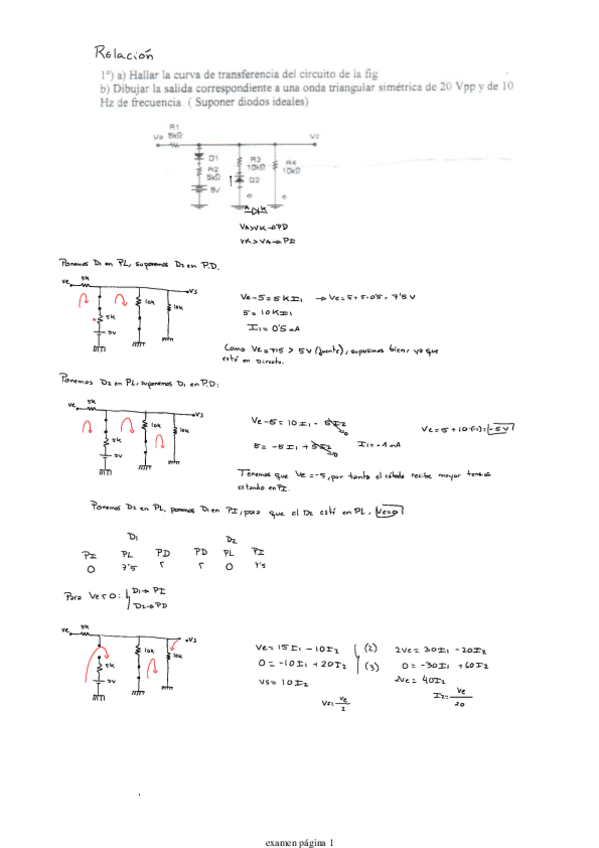 Relación
1º) a) Hallar la curva de transferencia del circuito de la fig
b) Dibujar la salida correspondiente a una onda triangular simétrica de 20 Vpp y de 10
Hz de frecuencia. ( Suponer diodos ideales)
R1
Ve 5kΩ Vs
D1
R2
5kΩ
5V
R3
10kΩ
D2
R4
10kΩ
A K
VA>VK→PD
VK>VA→PI
Ponemos D1 en PL, suponemos D2 en P.D.
ve 5k vs
10k
10k
5k
5V
Ve-5=5KI1 → Ve=5+5·0.5= 7'5V
5=10KI1
I1=0'5mA
Como Ve=7'5 > 5V (fuente), suposimos bien, ya que
está en Directo.
Ponemos D2 en PL, suponemos D1 en P.D:
ve 5k vs
10k
10k
5k
5V
Ve-5=10I1 - 5I2
5=-5I1 + 5I2 I1=-1mA
Ve=5+10·(-1)=-5V
Tenemos que Ve=-5, por tanto el cátodo recibe mayor tensión
estando en PI.
Ponemos D2 en PL, ponemos D1 en PI, para que el D2 esté en PL, Ve=0
D1 D2
PI PL PD PD PL PI
0 7'5 0 7'5
Para Ve<0: D1→PI
D2→PD
ve 5k vs
10k
10k
5k
5V
Ve=15I1 - 10I2 (2) 2Ve=30I1 - 20I2
0=-10I1 + 20I2 (3) 0=-30I1 + 60I2
Vs=10I2 2Ve=40I2
Vs=ve/2 I2=Ve/20
examen página 1